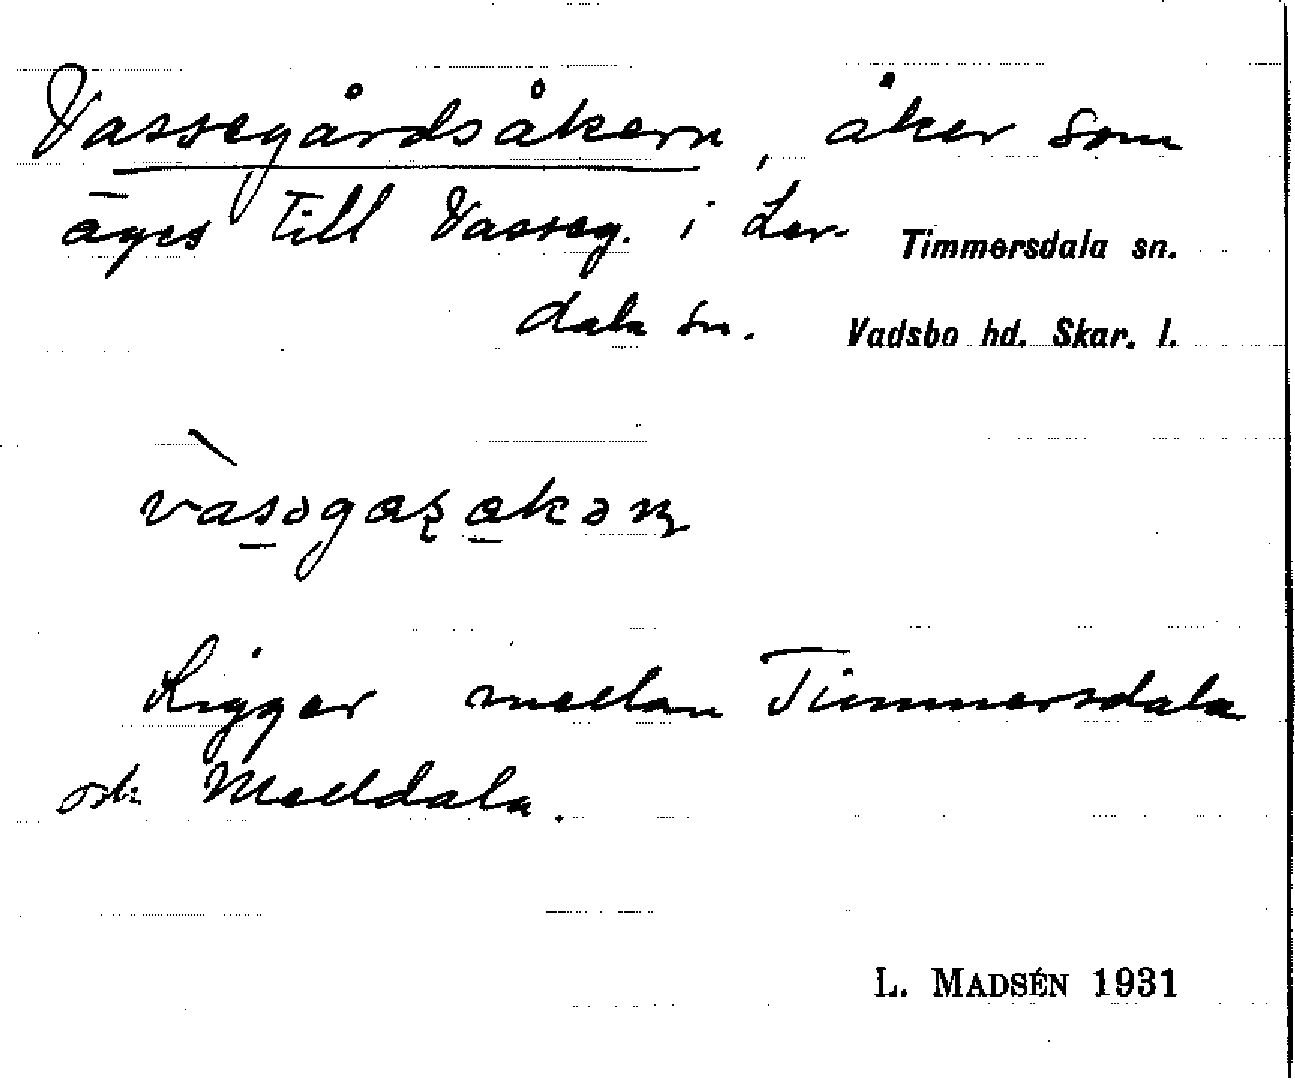 Vassegårdsåkern, åker som
äges till Vasseg. i Ler-
Timmersdala sn.
dala sn.
Vadsbo hd. Skar. l.
Ligger mellan Timmersdala
och Melldala.
L. MADSÉN 1931